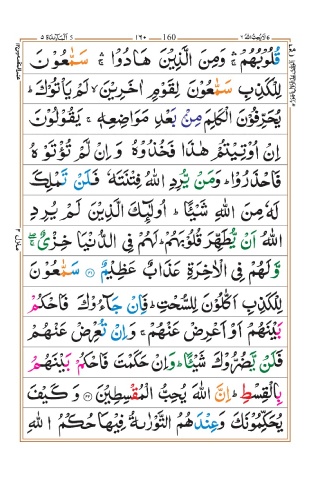 المآئدة ٥ 160 ١٦٠ لا يحب الله ٦
قُلُوۡبُهُمۡ ۛۚ وَمِنَ الَّذِيۡنَ هَادُوۡا ۛۚ سَمّٰعُوۡنَ
لِلۡكَذِبِ سَمّٰعُوۡنَ لِقَوۡمٍ اٰخَرِيۡنَۙ لَمۡ يَاۡتُوۡكَ‌ؕ
يُحَرِّفُوۡنَ الۡـكَلِمَ مِنۡۢ بَعۡدِ مَوَاضِعِهٖ‌ۚ يَقُوۡلُوۡنَ
اِنۡ اُوۡتِيۡتُمۡ هٰذَا فَخُذُوۡهُ وَاِنۡ لَّمۡ تُؤۡتَوۡهُ
فَاحۡذَرُوۡا‌ؕ وَمَنۡ يُّرِدِ اللّٰهُ فِتۡنَـتَهٗ فَلَنۡ تَمۡلِكَ
لَهٗ مِنَ اللّٰهِ شَيۡئًـا‌ؕ اُولٰٓئِكَ الَّذِيۡنَ لَمۡ يُرِدِ
اللّٰهُ اَنۡ يُّطَهِّرَ قُلُوۡبَهُمۡ‌ؕ لَهُمۡ فِىۡ الدُّنۡيَا خِزۡىٌ ۖۚ
وَّلَهُمۡ فِىۡ الۡاٰخِرَةِ عَذَابٌ عَظِيۡمٌ ﴿۴۱﴾ سَمّٰعُوۡنَ
لِلۡكَذِبِ اَ كّٰلُوۡنَ لِلسُّحۡتِ‌ؕ فَاِنۡ جَآءُوۡكَ فَاحۡكُمۡ
بَيۡنَهُمۡ اَوۡ اَعۡرِضۡ عَنۡهُمۡ‌ۚ وَاِنۡ تُعۡرِضۡ عَنۡهُمۡ
فَلَنۡ يَّضُرُّوۡكَ شَيۡئًـا‌ؕ وَاِنۡ حَكَمۡتَ فَاحۡكُمۡ بَيۡنَهُمۡ
بِالۡقِسۡطِ‌ؕ اِنَّ اللّٰهَ يُحِبُّ الۡمُقۡسِطِيۡنَ ﴿۴۲﴾ وَكَيۡفَ
يُحَكِّمُوۡنَكَ وَعِنۡدَهُمُ التَّوۡرٰٮةُ فِيۡهَا حُكۡمُ اللّٰهِ